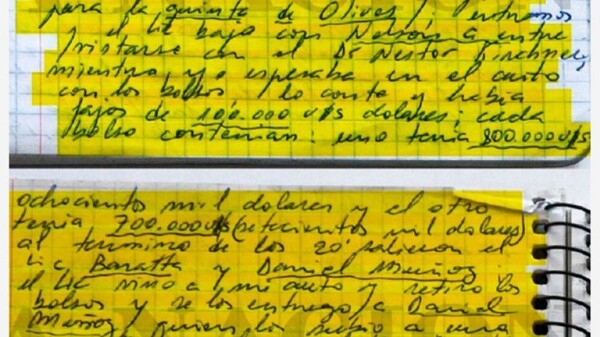 para la quinta de Olivos/. entramos
el Lic bajo con Nelson a entre
/vistarse con el Dr Nestor Kirchner,
mientras yo esperaba en el auto
con los bolsos / lo conte y habia
fajos de 100.000 u$s dolares; cada
bolso contenian: uno tenia 800.000 u$s
ochocientos mil dolares y el otro
tenia 700.000 u$s (setecientos mil dolares)
al termino de los 20' salieron el
Lic Baratta y Daniel Muñoz
el Lic vino a mi auto y retiro los
bolsos y se los entrego a Daniel
Muñoz / quien los subio a una